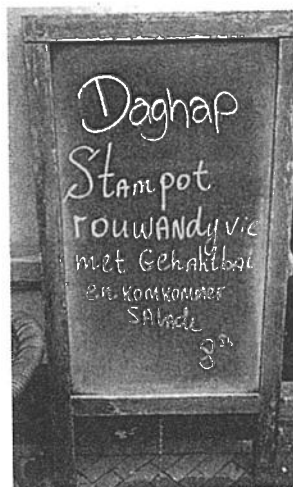 Daghap
Stampot
rouwandyvie
met Gehaktbal
en komkommer
Salade